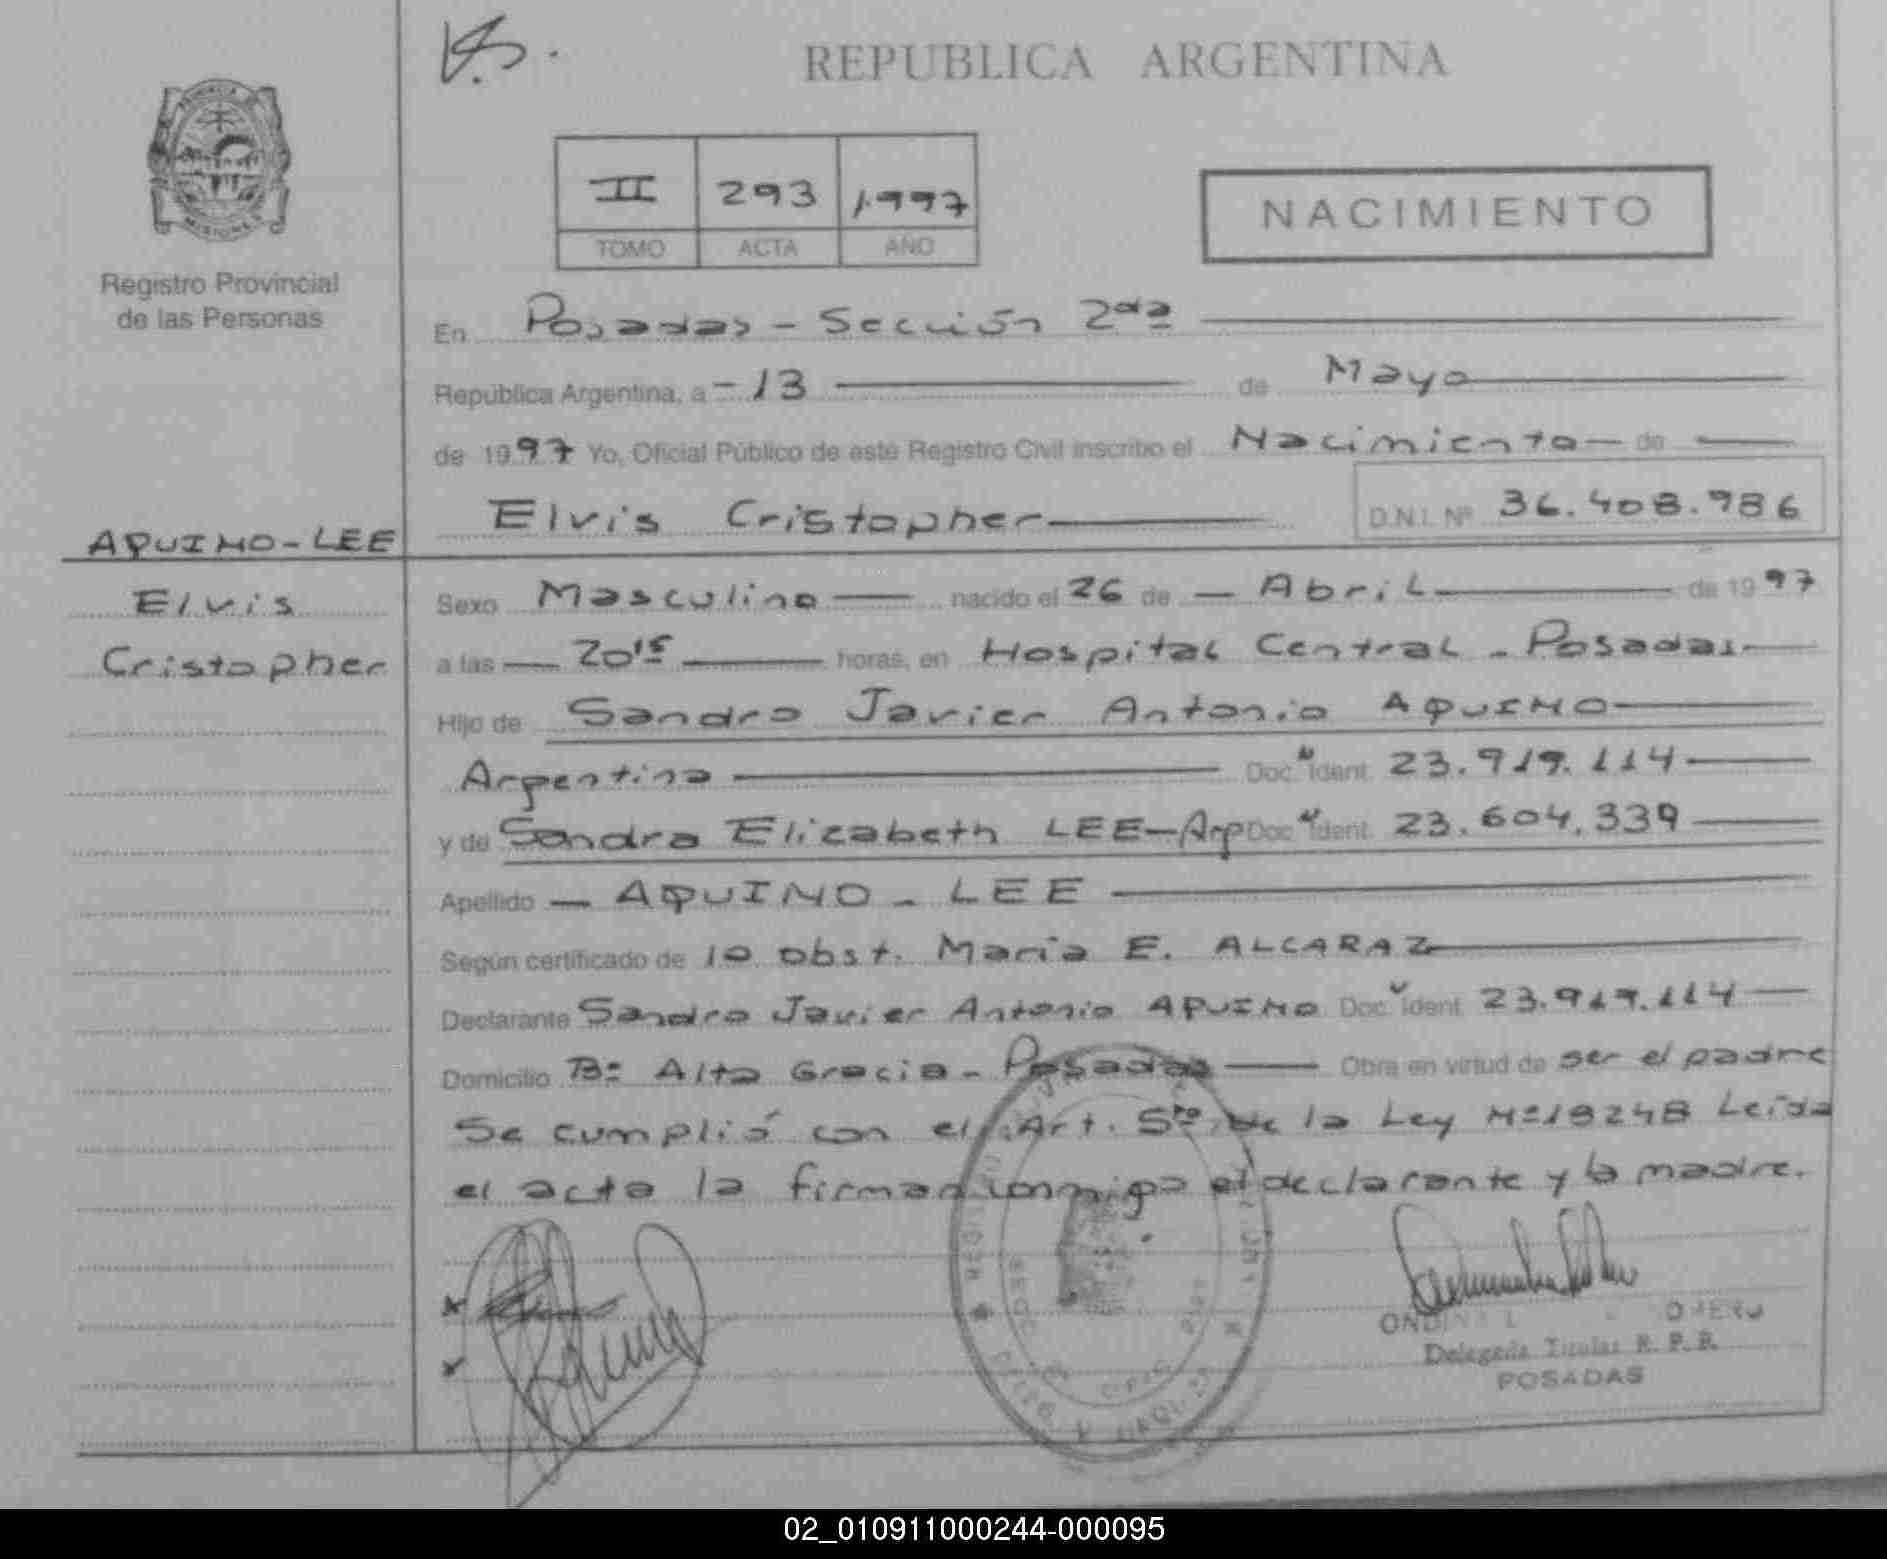 REPUBLICA ARGENTINA
II 293 1.997
TOMO ACTA AÑO
NACIMIENTO
Registro Provincial
de las Personas
En Posadas - Sección 2da
República Argentina, a - 13 de Mayo
de 1997 Yo, Oficial Público de este Registro Civil inscribo el Nacimiento de
Elvis Cristopher D.N.I. Nº 36.408.986
AQUINO-LEE
Elvis
Cristopher
Sexo Masculino nacido el 26 de - Abril de 1997
a las 20 15 horas, en Hospital Central - Posadas
Hijo de Sandro Javier Antonio AQUINO
Argentina Doc. Ident. 23.919.114
y de Sandra Elizabeth LEE-Arg Doc. Ident. 23.604.339
Apellido - AQUINO - LEE
Según certificado de la obst. María E. ALCARAZ
Declarante Sandro Javier Antonio AQUINO Doc. Ident. 23.919.114
Domicilio Bº Alta Gracia - Posadas Obra en virtud de ser el padre
Se cumplió con el Art. 5to de la Ley Nº 18248 Leída
el acta la firman conmigo el declarante y la madre.
Delegada Titular R. P. P.
POSADAS
02_010911000244-000095